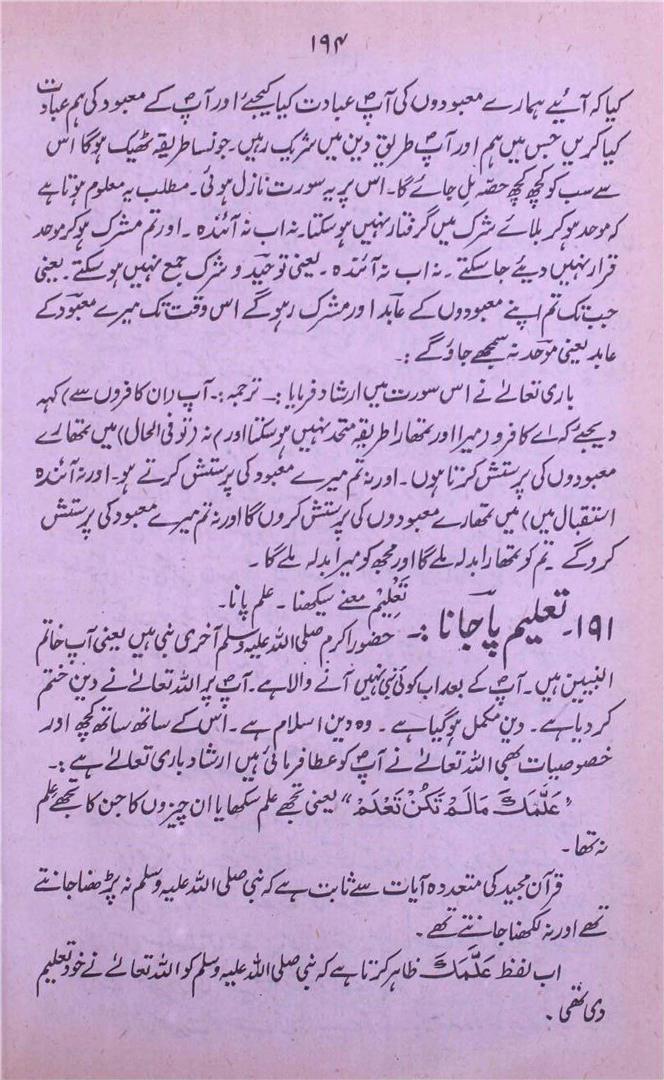 ۱۹۴
کیا کہ آئیے ہمارے معبودوں کی آپؐ عبادت کیا کیجیئے اور آپؐ کے معبود کی ہم عبادت
کیا کریں جس میں ہم اور آپؐ طریقِ دین میں شریک رہیں۔ جونسا طریقہ ٹھیک ہوگا اس
سے سب کو کچھ کچھ حصّہ مِل جائے گا۔ اس پر یہ سورت نازل ہوئی۔ مطلب یہ معلوم ہوتا ہے
کہ موحد ہو کر بلائے شرک میں گرفتار نہیں ہوسکتا۔ نہ اب نہ آئندہ ۔ اور تم مشرک ہو کر موحد
قرار نہیں دیئے جاسکتے ۔ نہ اب نہ آئندہ ۔ یعنی توحید و شرک جمع نہیں ہوسکتے۔ یعنی
جب تک تم اپنے معبودوں کے عابد اور مشرک رہو گے اس وقت تک میرے معبود کے
عابد یعنی موحد نہ سمجھے جاؤ گے :۔
باری تعالےٰ نے اس سورت میں ارشاد فرمایا :۔ ترجمہ :۔ آپ (ان کافروں سے) کہہ
دیجئے کہ اے کافرو (میرا اور تمھارا طریقہ متحد نہیں ہوسکتا اور) نہ (تو فی الحال) میں تمھارے
معبودوں کی پرستش کرتا ہوں ۔ اور نہ تم میرے معبود کی پرستش کرتے ہو۔ اور نہ آئندہ
استقبال میں) میں تمھارے معبودوں کی پرستش کروں گا اور نہ تم میرے معبود کی پرستش
کرو گے ۔ تم کو تمھارا بدلہ ملے گا اور مجھ کو میرا بدلہ ملے گا ۔
۱۹۱۔ تعلیم پا جانا :۔ تَعْلِیْم معنے سیکھنا ۔ علم پانا۔
حضور اکرم صلی اللہ علیہ وسلم آخری نبی ہیں یعنی آپ خاتم
النبیین ہیں۔ آپؐ کے بعد اب کوئی نبی نہیں آنے والا ہے۔ آپؐ پر اللہ تعالےٰ نے دین ختم
کر دیا ہے ۔ دین مکمل ہوگیا ہے ۔ وہ دین اسلام ہے ۔ اس کے ساتھ ساتھ کچھ اور
خصوصیات بھی اللہ تعالےٰ نے آپؐ کو عطا فرمائی ہیں ارشاد باری تعالےٰ ہے :۔
”عَلَّمَكَ مَالَمْ تَكُنْ تَعْلَمْ“ یعنی تجھے علم سکھایا ان چیزوں کا جن کا تجھے علم
نہ تھا ۔
قرآن مجید کی متعدد آیات سے ثابت ہے کہ نبی صلی اللہ علیہ وسلم نہ پڑھنا جانتے
تھے اور نہ لکھنا جانتے تھے ۔
اب لفظ عَلَّمَكَ ظاہر کرتا ہے کہ نبی صلی اللہ علیہ وسلم کو اللہ تعالےٰ نے خود تعلیم
دی تھی ۔